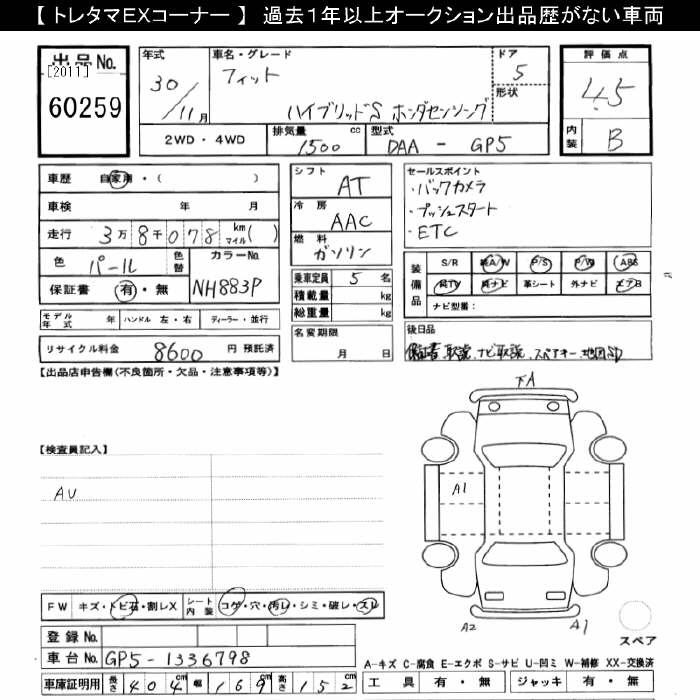 【 トレタマEXコーナー 】 過去1年以上オークション出品歴がない車両
出品No.
[2011]
60259
年式
30/11月
車名・グレード
フィット
ハイブリッドS ホンダセンシング
ドア
5
形状
評価点
4.5
内装
B
2WD・4WD
排気量
1500 cc
型式
DAA - GP5
車歴 自家用・( )
車検 年 月
走行 3万8千078 km マイル( )
色 パール 色替
カラーNo.
NH883P
保証書 有・無
モデル年式 年 ハンドル 左・右 ディーラー・並行
リサイクル料金 8600 円 預託済
シフト
AT
冷房
AAC
燃料
ガソリン
乗車定員 5 名
積載量 kg
総重量 kg
名変期限
月 日
セールスポイント
・バックカメラ
・プッシュスタート
・ETC
装備品
S/R 純A/W P/S P/W ABS
純TV 純ナビ 革シート 外ナビ エアB
ナビ型番：
後日品
保証書、取説、ナビ取説、スペアキー、地図SD
【出品店申告欄(不良箇所・欠品・注意事項等)】
【検査員記入】
AU
下A
A1
A2
A1
スペア
FW キズ・トビ石・割レX シート内装 コゲ・穴・汚レ・シミ・破レ・スレ
登録No.
車台No. GP5-1336798
車庫証明用 長さ 404cm 幅 169cm 高さ 152cm
A-キズ C-腐食 E-エクボ S-サビ U-凹ミ W-補修 XX-交換済
工具 有・無 ジャッキ 有・無